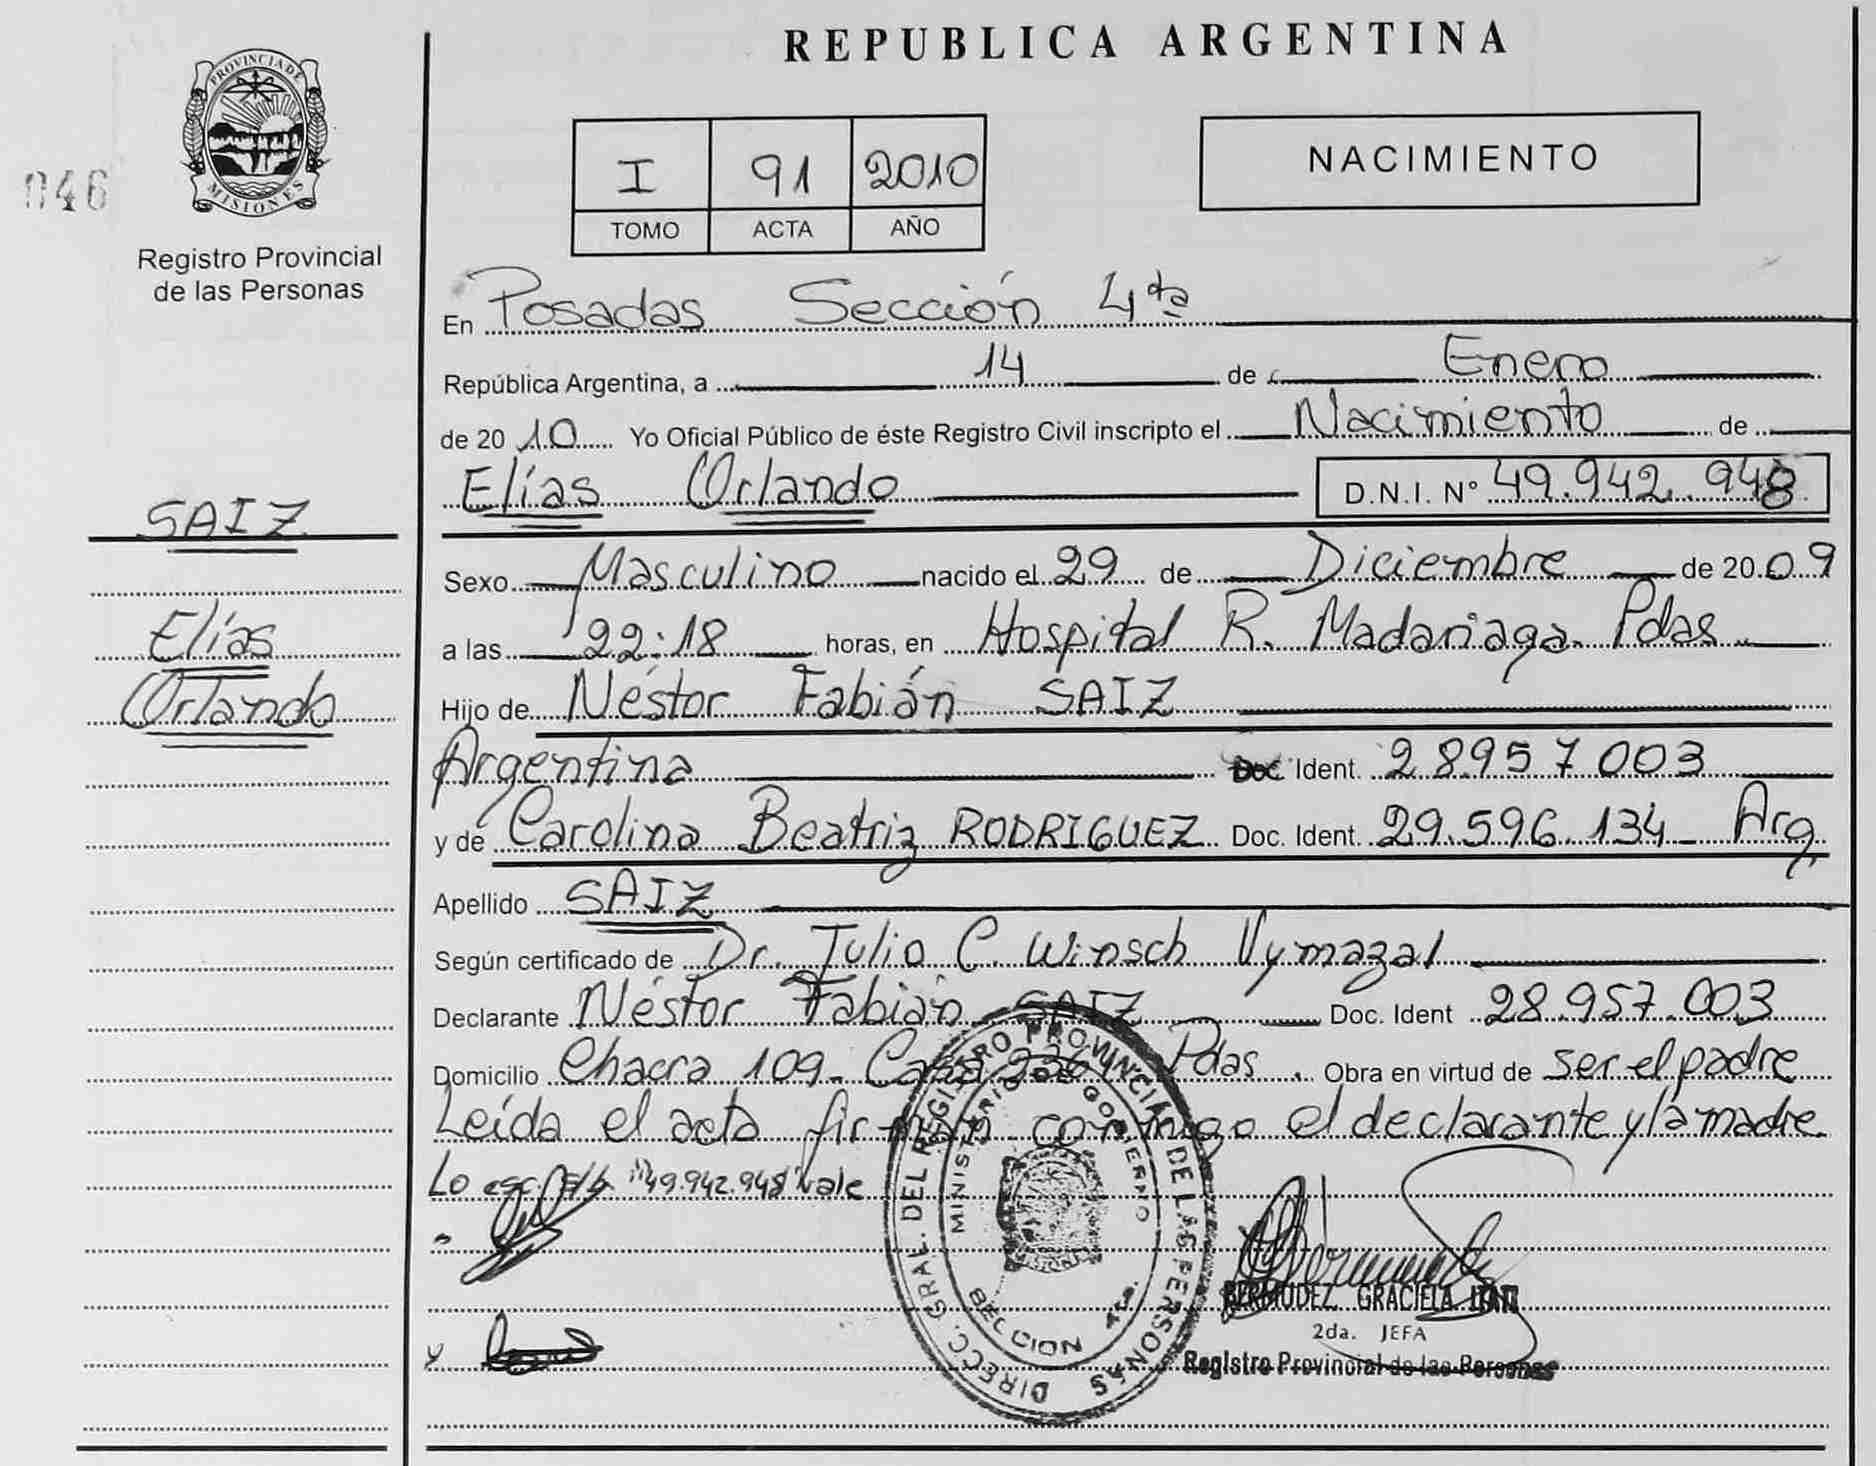 REPUBLICA ARGENTINA
PROVINCIA DE
MISIONES
046
Registro Provincial
de las Personas
I 91 2010
TOMO ACTA AÑO
NACIMIENTO
En Posadas Sección 4ta
República Argentina, a 14 de Enero
de 20 10 Yo Oficial Público de éste Registro Civil inscripto el Nacimiento de
Elías Orlando D.N.I. N° 49.942.948
SAIZ
Elías
Orlando
Sexo Masculino nacido el 29 de Diciembre de 20 09
a las 22:18 horas, en Hospital R. Madariaga. Pdas
Hijo de Néstor Fabián SAIZ
Argentina Doc Ident. 28957003
y de Carolina Beatriz RODRIGUEZ Doc. Ident. 29.596.134 Arg.
Apellido SAIZ
Según certificado de Dr. Julio C. Winsch Vymazal
Declarante Néstor Fabián SAIZ Doc. Ident 28.957.003
Domicilio Chacra 109 - Casa Pdas. Obra en virtud de ser el padre
Leída el acta firman conmigo el declarante y la madre.
Lo "49.942.948" vale
y
DIRECC. GRAL. DEL REGISTRO PROVINCIAL DE LAS PERSONAS
MINISTERIO DE GOBIERNO
SECCION 4ta.
BERMUDEZ GRACIELA
2da. JEFA
Registro Provincial de las Personas